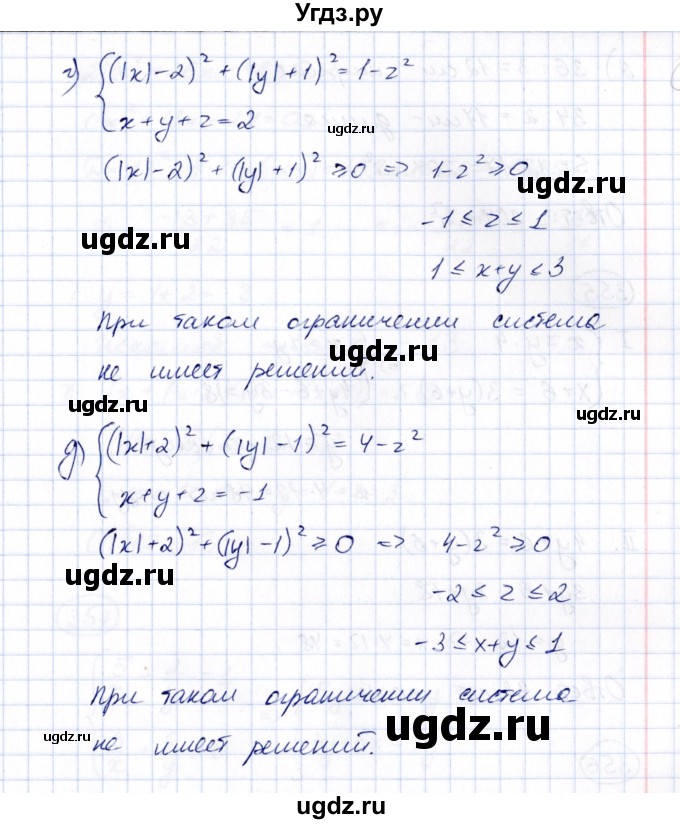 Угдз.ру
г) { (|x|-2)² + (|y|+1)² = 1-z²
x+y+z=2
ugdz.ru
(|x|-2)² + (|y|+1)² ≥ 0 => 1-z² ≥ 0
ugdz.ru
ugdz.ru
-1 ≤ z ≤ 1
ugdz.ru
1 ≤ x+y ≤ 3
При таком ограничении система
ugdz.ru
не имеет решений.
ugdz.ru
ugdz.ru
д) { (|x|+2)² + (|y|-1)² = 4-z²
x+y+z=-1
ugdz.ru
(|x|+2)² + (|y|-1)² ≥ 0 => 4-z² ≥ 0
ugdz.ru
-2 ≤ z ≤ 2
ugdz.ru
-3 ≤ x+y ≤ 1
При таком ограничении система
ugdz.ru
не имеет решений.
ugdz.ru
ugdz.ru
ugdz.ru